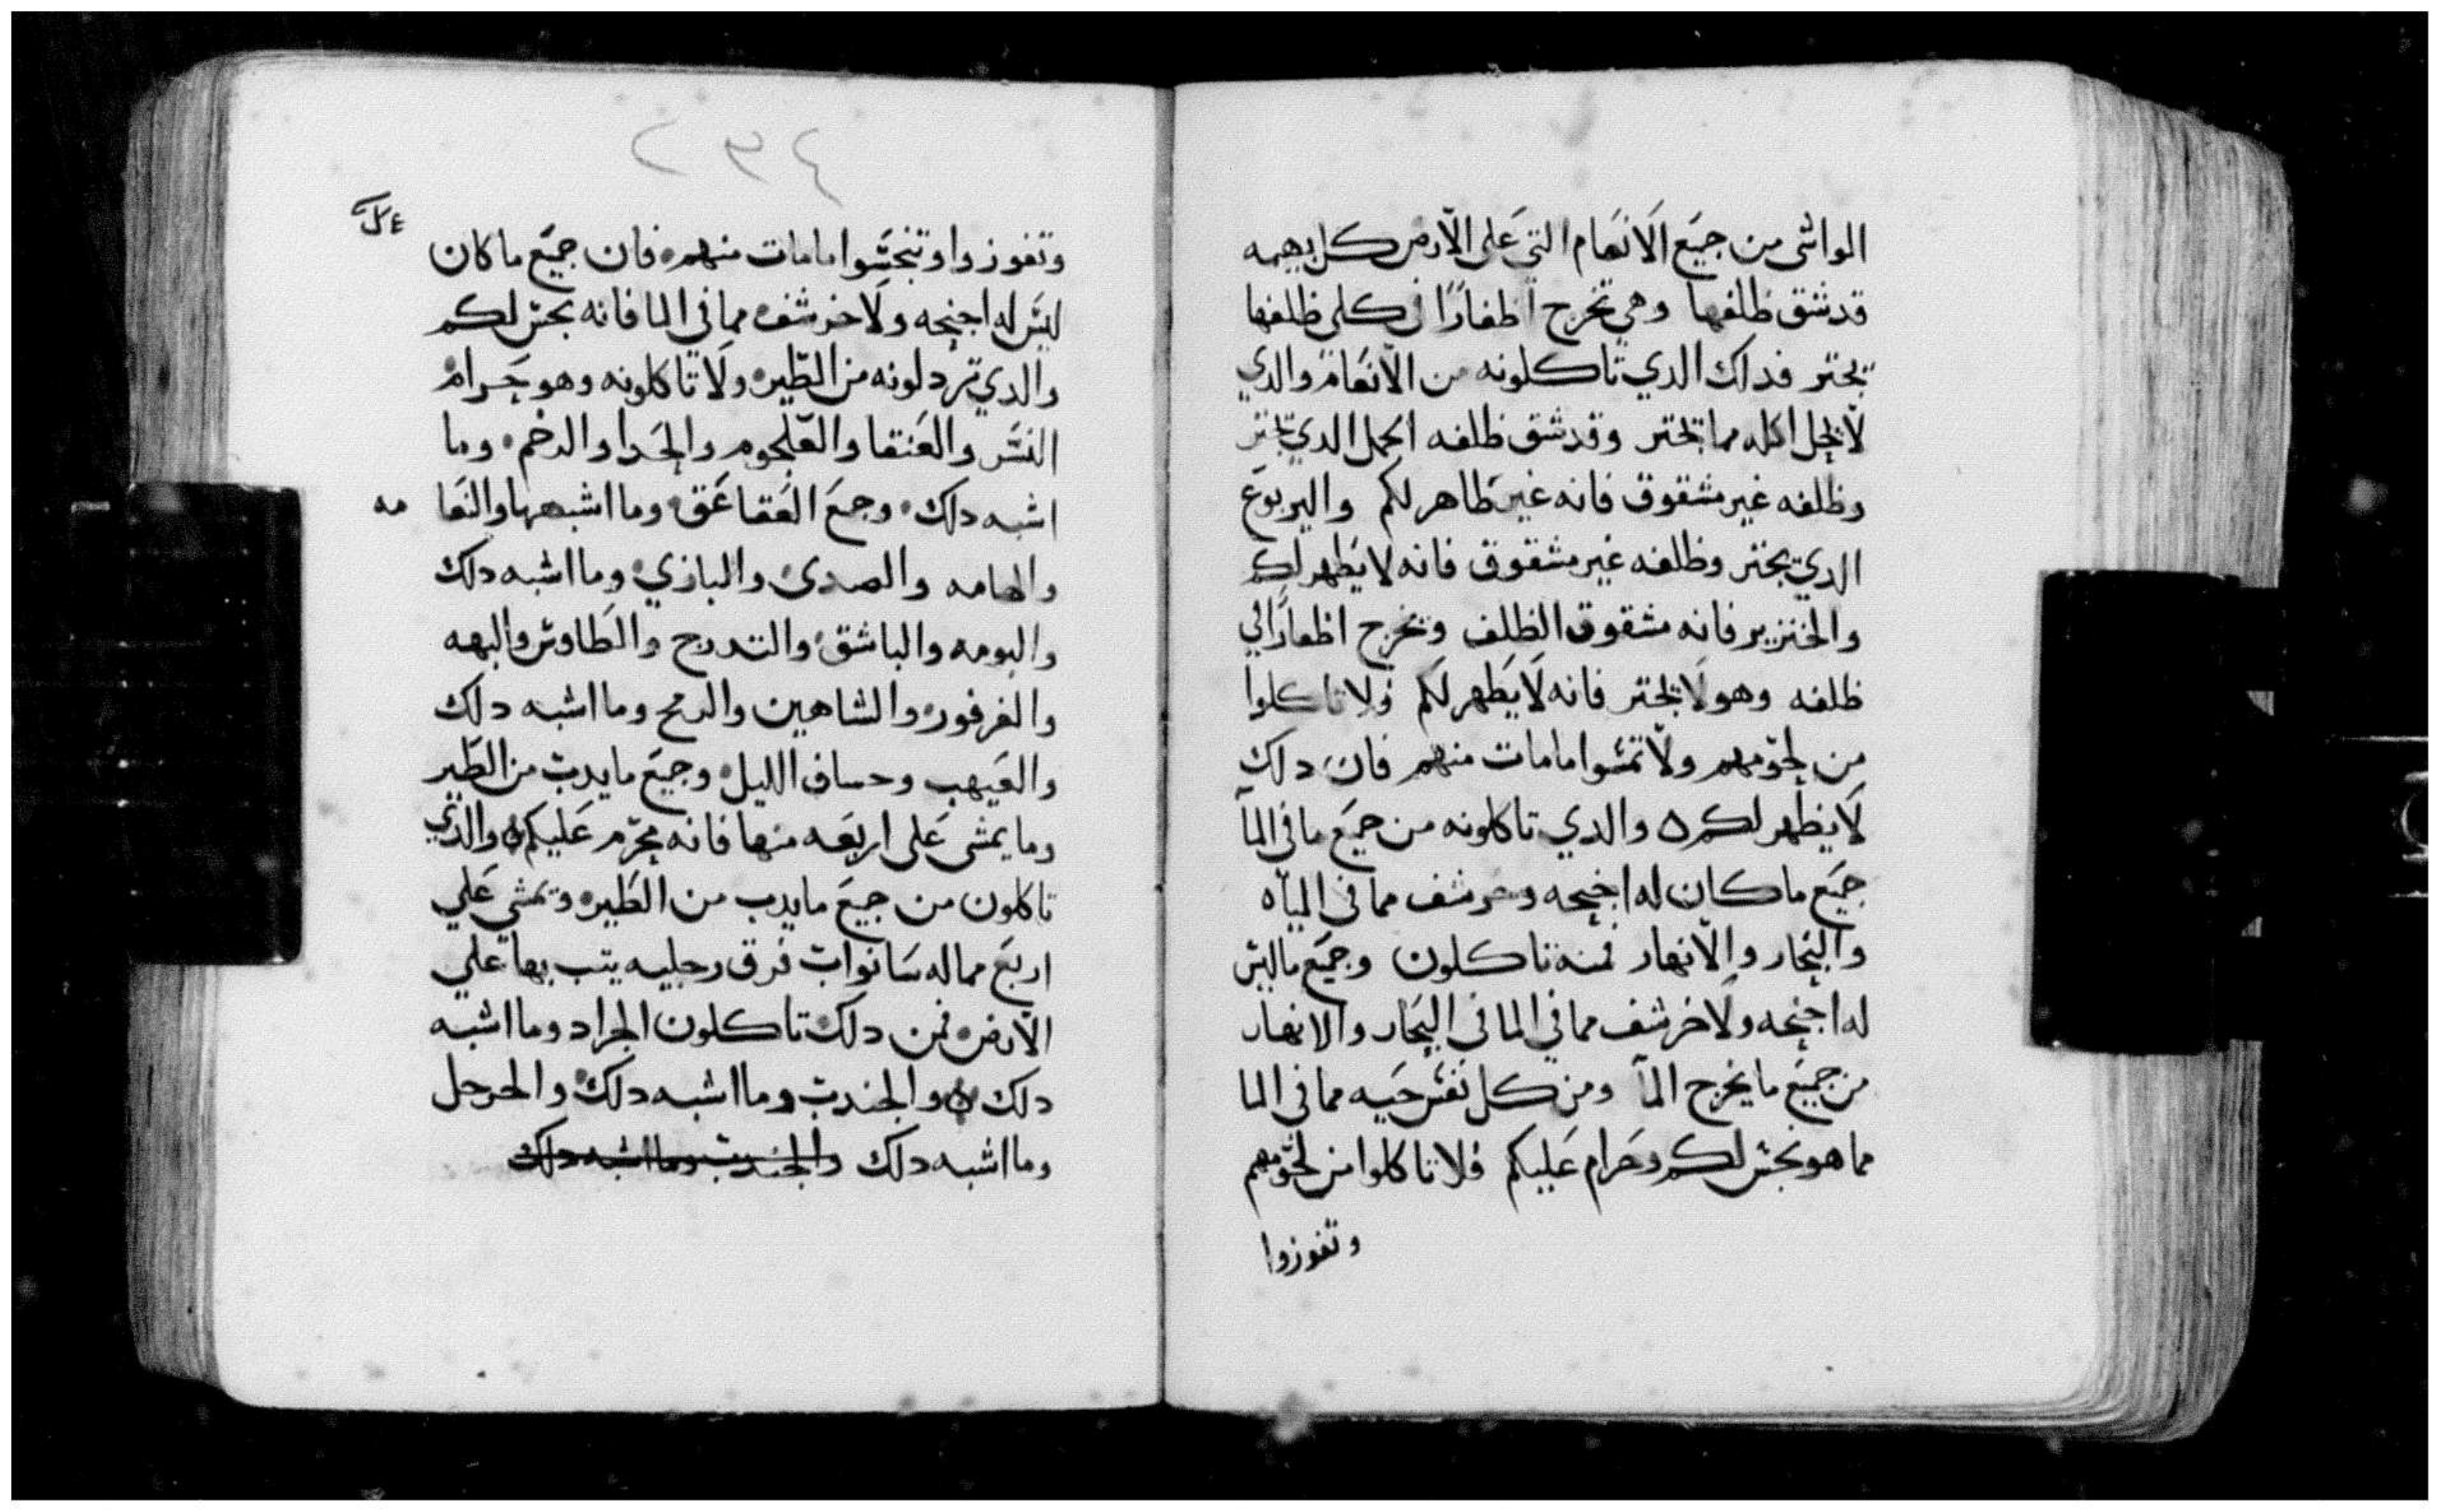 المواشى من جميع الانعام التي على الارض كل بهيمه
قد شق ظلفها وهي تخرج اظفارًا فى كلى ظلفها
تجتر فداك الدي تاكلونه من الانعام والدي
لا يحل اكله مما تجتر وقد شق ظلفه الجمل الدي يجتر
وظلفه غير مشقوق فانه غير طاهر لكم واليربوع
الدي يجتر وظلفه غير مشقوق فانه لا يطهر لكم
والخنزير فانه مشقوق الظلف ويخرج اظفارًا في
ظلفه وهو لا يجتر فانه لا يطهر لكم فلا تاكلوا
من لحومهم ولا تمسوا ما مات منهم فان دلك
لا يطهر لكم ه والدي تاكلونه من جميع ما في المآ
جميع ما كان له اجنحه وخرشف مما في المياه
والبحار والانهار فمنه تاكلون وجميع ما ليس
له اجنحه ولا خرشف مما في الما في البحار والانهار
من جميع ما يخرج المآ ومن كل نفس حيه مما في الما
مما هو نجس لكم وحرام عليكم فلا تاكلوا من لحومهم
وتفوزوا
٢٣٤
وتفوزوا وتنجسوا ما مات منهم فان جميع ما كان
ليس له اجنحه ولا خرشف مما في الما فانه نجس لكم
والدي تردلونه من الطير ولا تاكلونه وهو حرام
النسر والعنقا والعلجوم والحدا والرخم وما
اشبه دلك وجمع العقاعق وما اشبهها والنعا مه
والهامه والصدى والبازي وما اشبه دلك
والبومه والباشق والتدرج والطاوس والبهه
والفرفور والشاهين والرمح وما اشبه دلك
والغيهب وحساف الليل وجميع ما يدب من الطير
وما يمشى على اربعه منها فانه محرم عليكم ه والدي
تاكلون من جميع ما يدب من الطير ويمشي علي
اربع مما له ساقوات فوق رجليه يثب بها علي
الارض فمن دلك تاكلون الجراد وما اشبه
دلك ه والجندب وما اشبه دلك والحرجل
وما اشبه دلك والجندب وما اشبه دلك